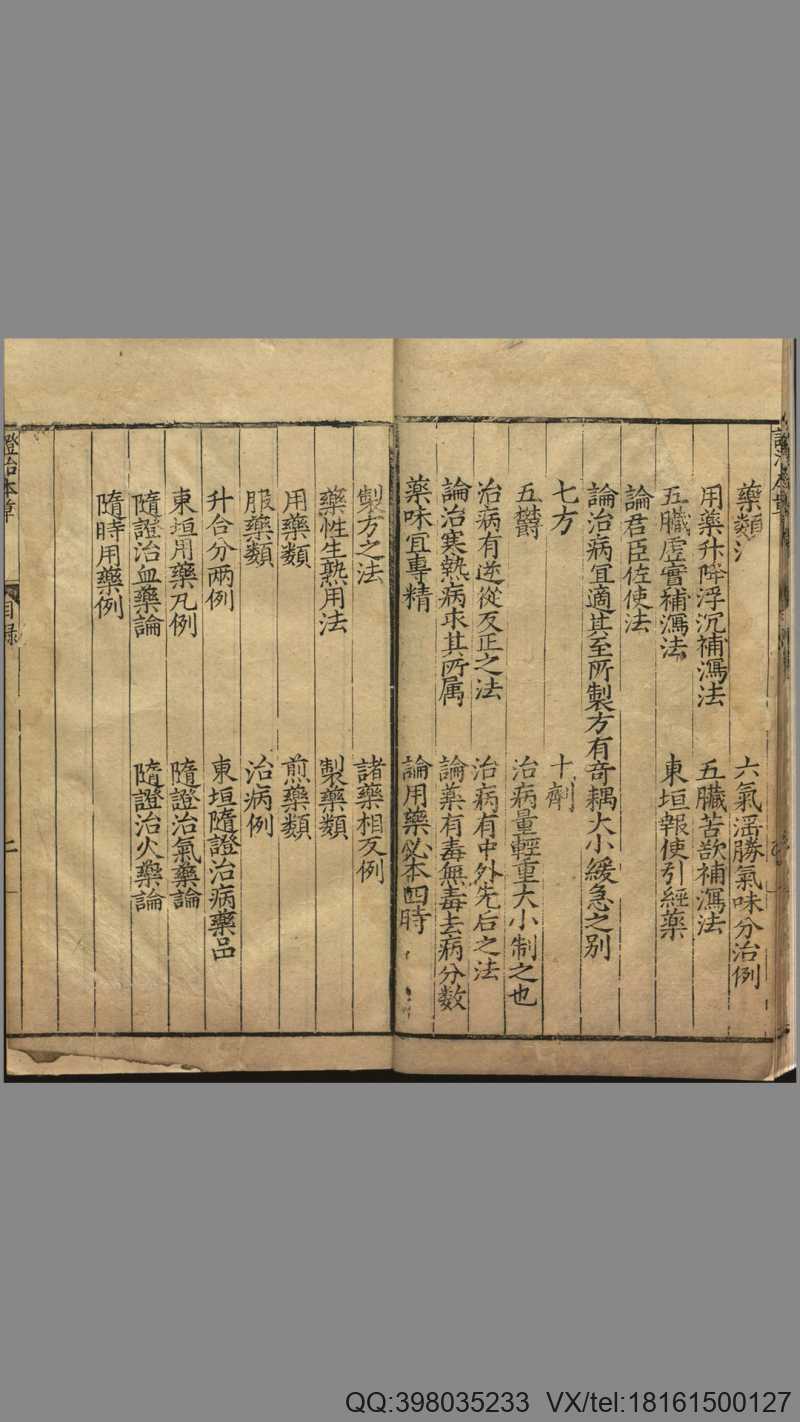 藥類法 六氣淫勝氣味分治例
用藥升降浮沉補瀉法 五臟苦欲補瀉法
五臟虛實補瀉法 東垣報使引經藥
論君臣佐使法
論治病宜適其至所製方有奇耦大小緩急之别
七方 十劑
五欝 治病量輕重大小制之也
治病有逆從反正之法 治病有中外先后之法
論治寒熱病求其所属 論藥有毒無毒去病分数
藥味宜專精 論用藥必本四時
製方之法 諸藥相反例
藥性生熟用法 製藥類
用藥類 煎藥類
服藥類 治病例
升合分兩例 東垣隨證治病藥品
東垣用藥凡例 隨證治氣藥論
隨證治血藥論 隨證治火藥論
隨時用藥例
證治本草 目録 二
QQ:398035233 VX/tel:18161500127